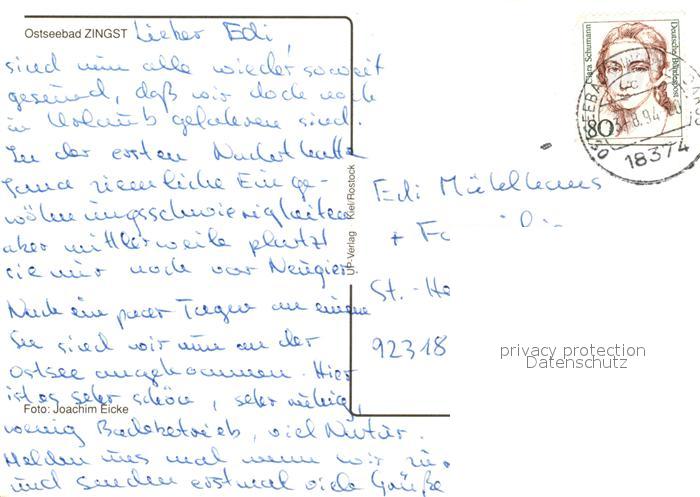 Ostseebad ZINGST
Lieber Edi,
sind nun alle wieder soweit
gesund, daß wir doch noch
in Urlaub gefahren sind.
In der ersten Nacht hatte
Jana ziemliche Einge-
wöhnungsschwierigkeiten
aber mittlerweile platzt
sie nur noch vor Neugier.
Nach ein paar Tagen an einem
See sind wir nun an der
Ostsee angekommen. Hier
ist es sehr schön, sehr ruhig,
wenig Badebetrieb, viel Natur.
Melden uns mal wenn wir zu
und senden erstmal viele Grüße
Foto: Joachim Eicke
UP-Verlag Kiel/Rostock
Clara Schumann
Deutsche Bundespost
80
OSTSEEBAD
8.94
18374
Edi Mühlhaus
+ Fa
St.-He
92318
privacy protection
Datenschutz